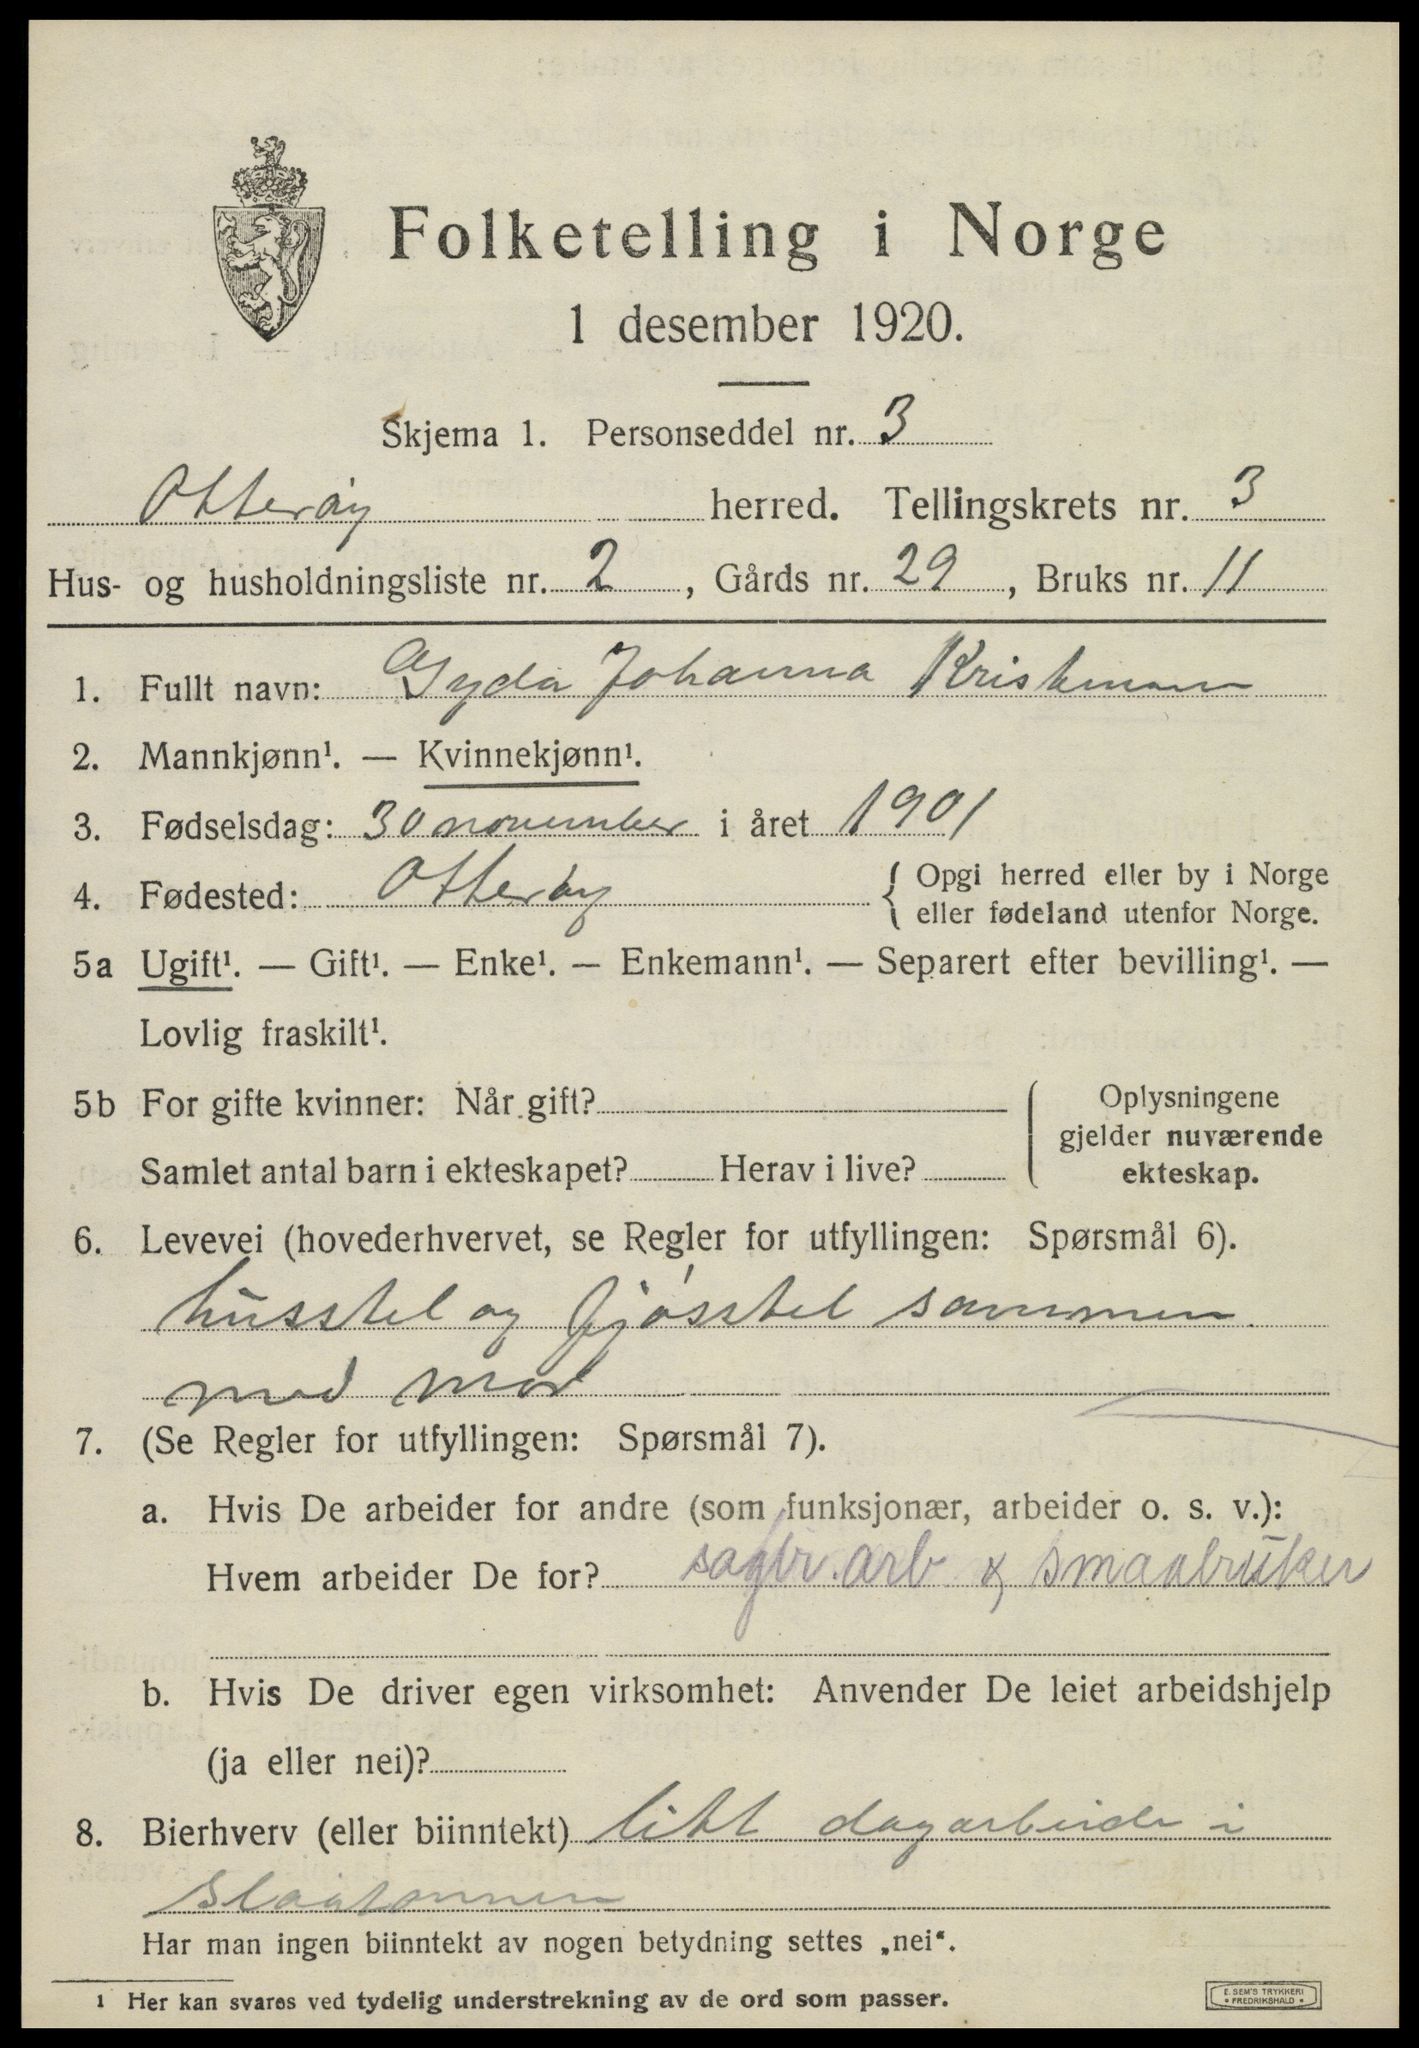 Folketelling i Norge
1 desember 1920.
Skjema 1. Personseddel nr. 3
Otterøy herred. Tellingskrets nr. 3
Hus- og husholdningsliste nr. 2, Gårds nr. 29, Bruks nr. 11
1. Fullt navn: Gyda Johanna
2. Mannkjønn¹. — Kvinnekjønn¹.
3. Fødselsdag: 30 november i året 1901
4. Fødested: Otterøy { Opgi herred eller by i Norge
eller fødeland utenfor Norge.
5a Ugift¹. — Gift¹. — Enke¹. — Enkemann¹. — Separert efter bevilling¹. —
Lovlig fraskilt¹.
5b For gifte kvinner: Når gift?
Samlet antal barn i ekteskapet? Herav i live?
Oplysningene
gjelder nuværende
ekteskap.
6. Levevei (hovederhvervet, se Regler for utfyllingen: Spørsmål 6).
husstel og fjósstel sammen
med mor
7. (Se Regler for utfyllingen: Spørsmål 7).
a. Hvis De arbeider for andre (som funksjonær, arbeider o. s. v.):
Hvem arbeider De for? sagbr. arb & smaabruker
b. Hvis De driver egen virksomhet: Anvender De leiet arbeidshjelp
(ja eller nei)?
8. Bierhverv (eller biinntekt) litt dagarbeide i
slaatonnen
Har man ingen biinntekt av nogen betydning settes „nei“.
1 Her kan svares ved tydelig understrekning av de ord som passer.
E. SEM'S TRYKKERI
• FREDRIKSHALD •